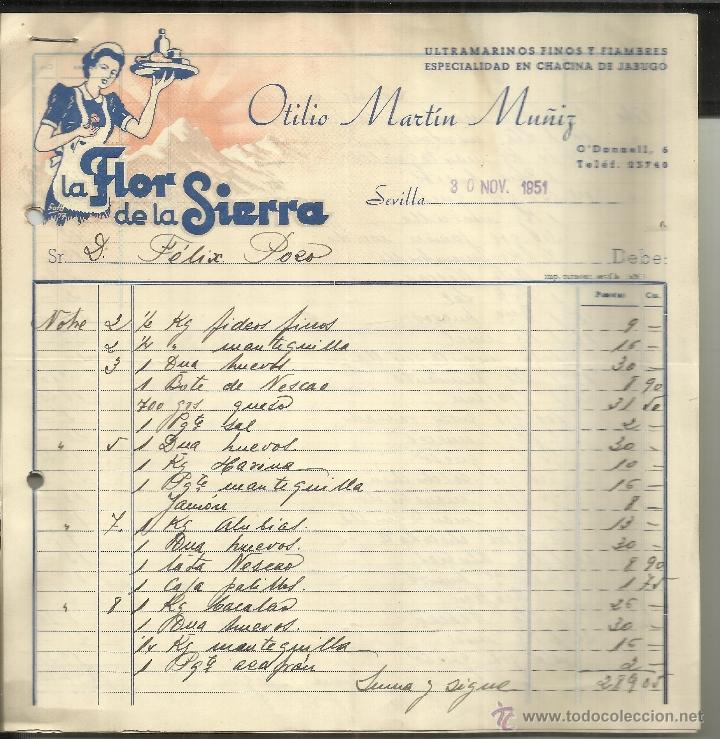 ULTRAMARINOS FINOS Y FIAMBRES
ESPECIALIDAD EN CHACINA DE JABUGO
Otilio Martín Muñiz
O'Donnell, 6
Teléf. 23740
la Flor
de la Sierra
Sevilla 30 NOV. 1951
Sr. D. Félix Pozo Debe:
Pesetas Cts.
Nobre 2 ½ Kg fideos finos 9 —
2 ¼ " mantequilla 15 —
3 1 Dna huevos 30 —
1 Bote de Nescao 8 90
700 grs queso 31 50
1 Pqte sal 2 —
" 5 1 Dna huevos 30 —
1 Kg Harina 10 —
1 Pqte mantequilla 15 —
Jamón 8 —
" 7 1 Kg alubias 13 —
1 Dna huevos. 30 —
1 lata Nescao 8 90
1 Caja palillos 1 75
" 8 1 Kg bacalao 25 —
1 Dna huevos. 30 —
¼ Kg mantequilla 15 —
1 Pqte 2 —
Suma y sigue 289 05
www.todocoleccion.net